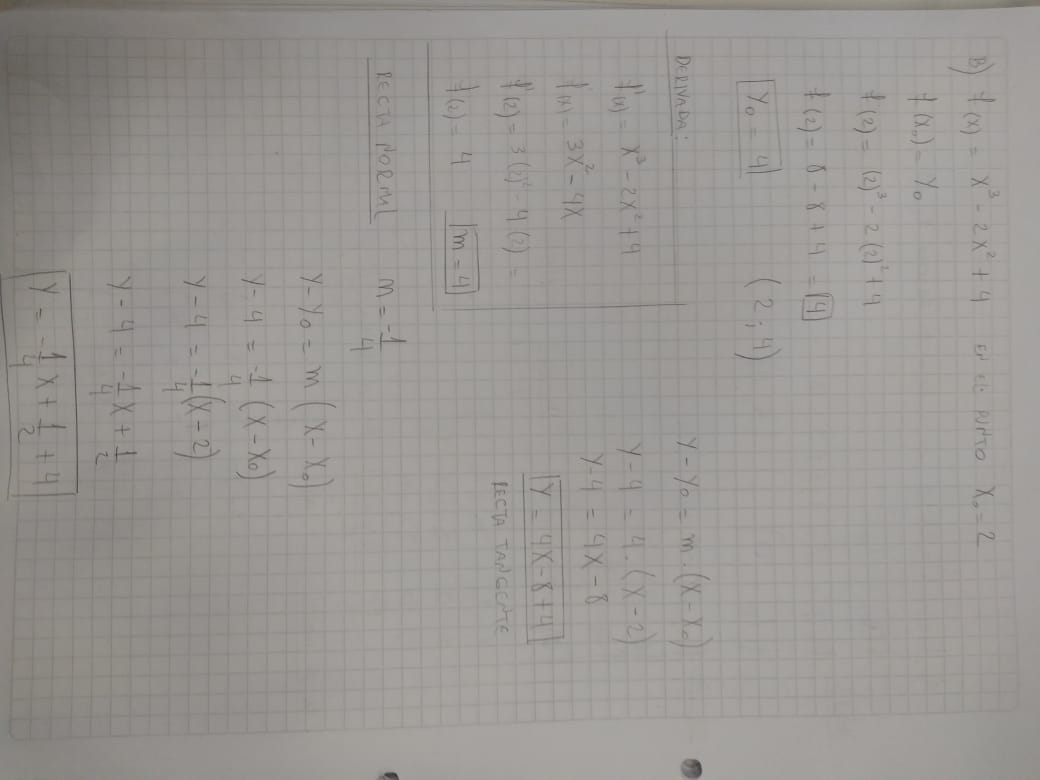 B) f(x) = x³ - 2x² + 4 EN EL PUNTO X₀ = 2
f(x₀) = y₀
f(2) = (2)³ - 2(2)² + 4
f(2) = 8 - 8 + 4 = 4
y₀ = 4 (2;4)
DERIVADA:
f(x) = x³ - 2x² + 4
f'(x) = 3x² - 4x
f'(2) = 3(2)² - 4(2) =
f'(2) = 4 m = 4
y - y₀ = m · (x - x₀)
y - 4 = 4 · (x - 2)
y - 4 = 4x - 8
y = 4x - 8 + 4
RECTA TANGENTE
RECTA NORMAL m = -1/4
y - y₀ = m (x - x₀)
y - 4 = -1/4 (x - x₀)
y - 4 = -1/4 (x - 2)
y - 4 = -1/4 x + 1/2
y = -1/4 x + 1/2 + 4